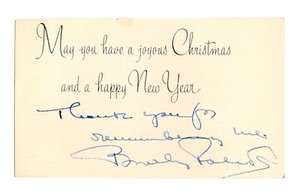 May you have a joyous Christmas
and a happy New Year
Thank you for
remembering me